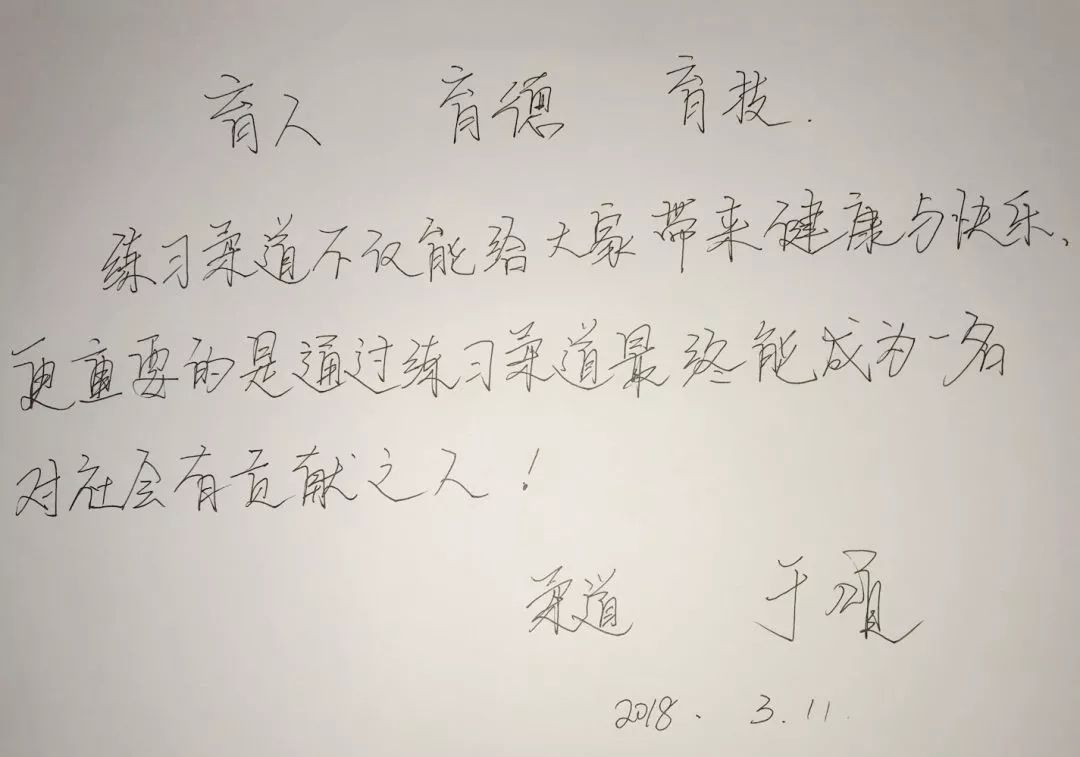 育人 育德 育技.
练习柔道不仅能给大家带来健康与快乐、
更重要的是通过练习柔道最终能成为一名
对社会有贡献之人！
柔道 于颂
2018. 3.11.